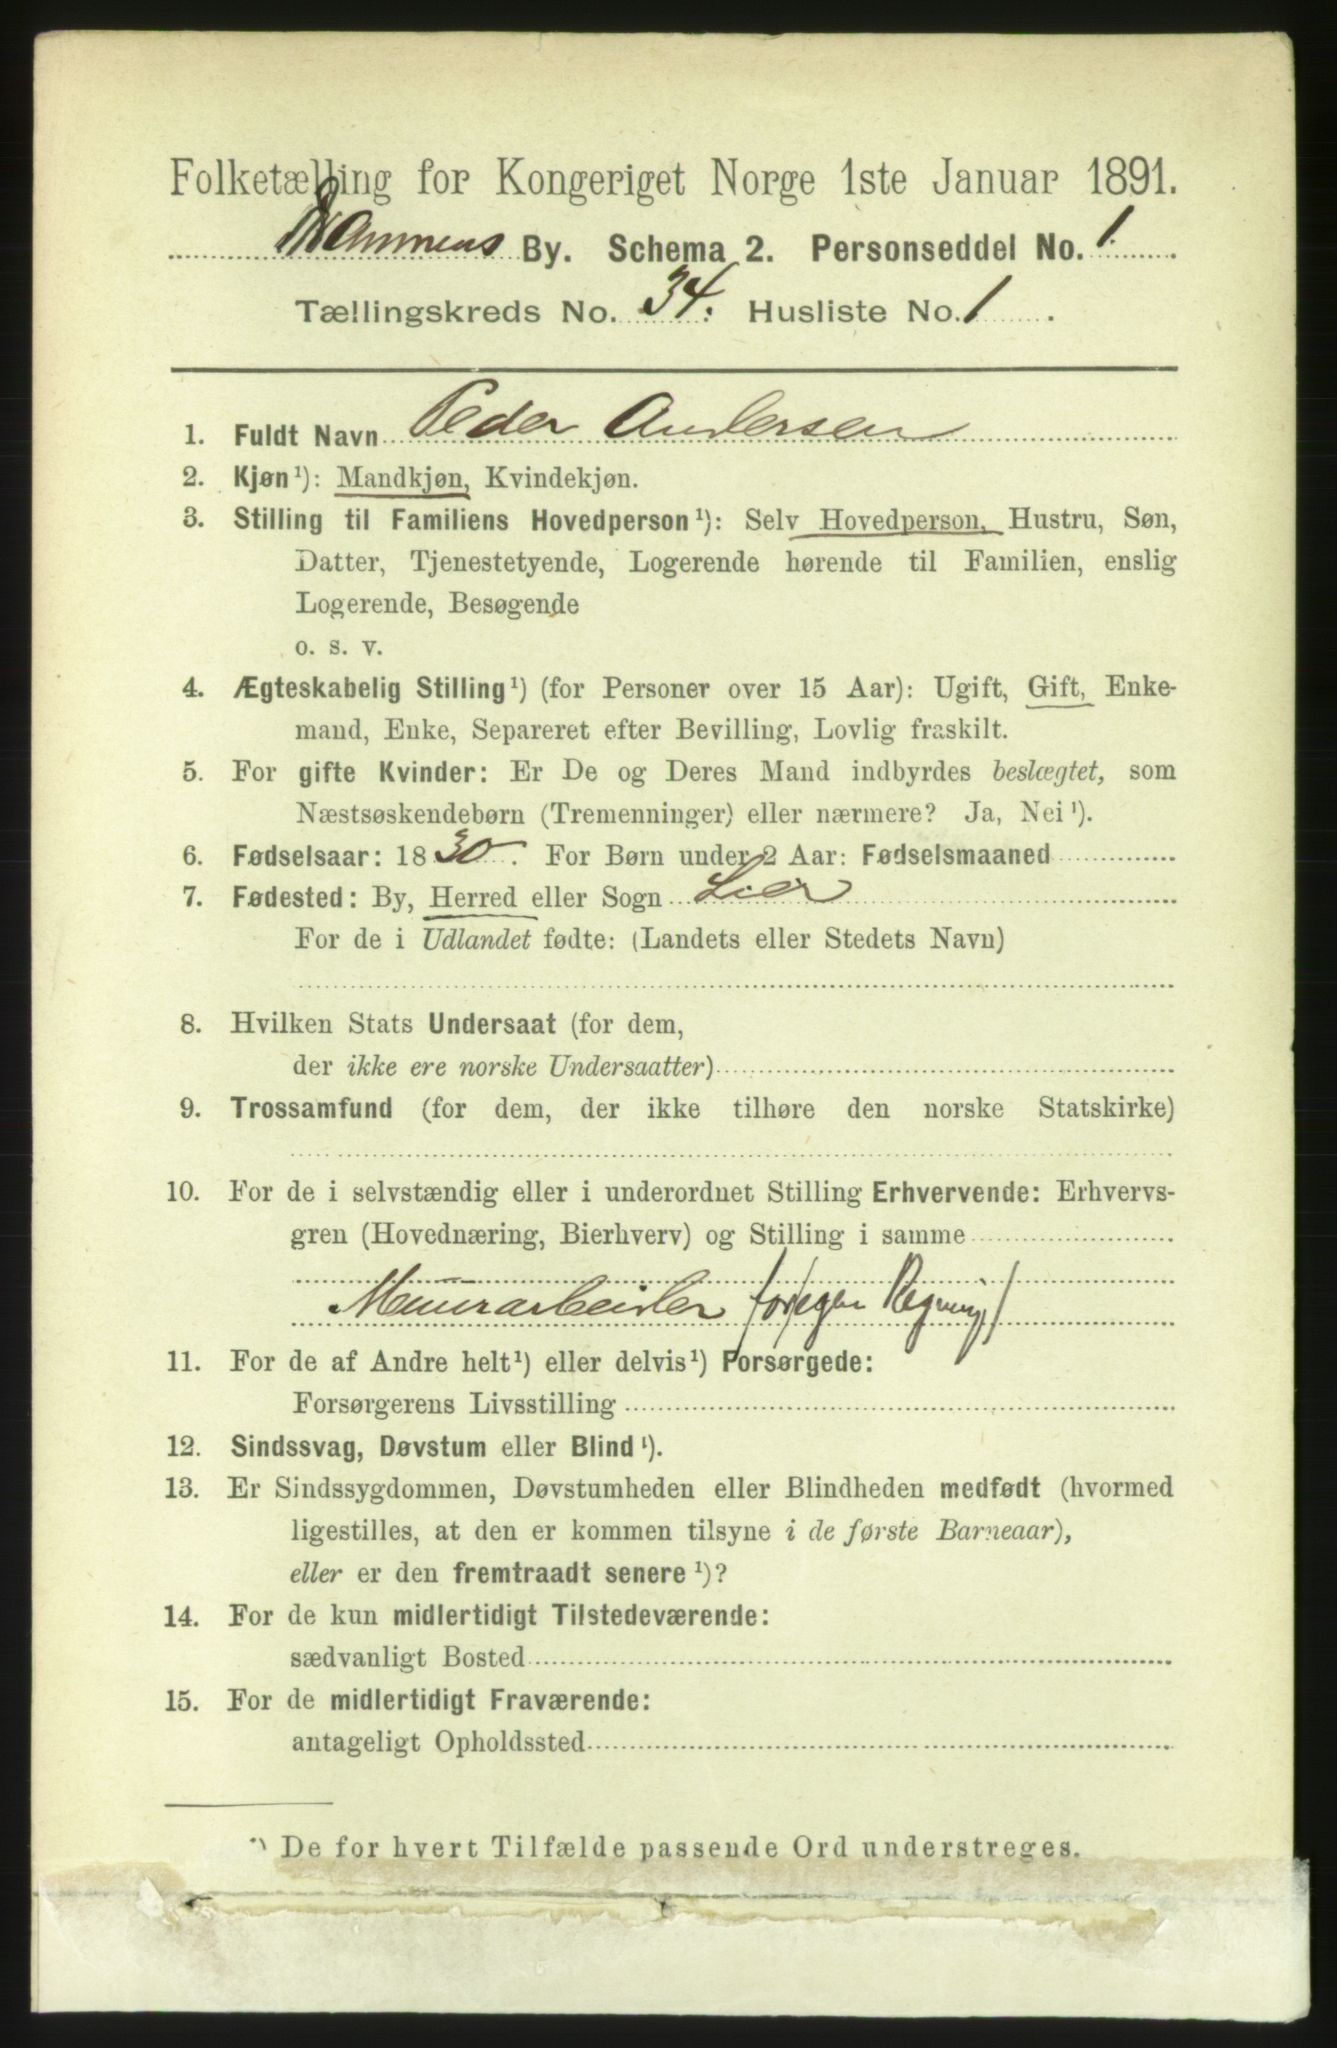 Folketælling for Kongeriget Norge 1ste Januar 1891.
Drammens By. Schema 2. Personseddel No. 1.
Tællingskreds No. 34. Husliste No. 1.
1. Fuldt Navn Peder Andersen
2. Kjøn¹): Mandkjøn, Kvindekjøn.
3. Stilling til Familiens Hovedperson¹): Selv Hovedperson, Hustru, Søn,
Datter, Tjenestetyende, Logerende hørende til Familien, enslig
Logerende, Besøgende
o. s. v.
4. Ægteskabelig Stilling¹) (for Personer over 15 Aar): Ugift, Gift, Enke-
mand, Enke, Separeret efter Bevilling, Lovlig fraskilt.
5. For gifte Kvinder: Er De og Deres Mand indbyrdes beslægtet, som
Næstsøskendebørn (Tremenninger) eller nærmere? Ja, Nei¹).
6. Fødselsaar: 1830. For Børn under 2 Aar: Fødselsmaaned
7. Fødested: By, Herred eller Sogn Lier
For de i Udlandet fødte: (Landets eller Stedets Navn)
8. Hvilken Stats Undersaat (for dem,
der ikke ere norske Undersaatter)
9. Trossamfund (for dem, der ikke tilhøre den norske Statskirke)
10. For de i selvstændig eller i underordnet Stilling Erhvervende: Erhvervs-
gren (Hovednæring, Bierhverv) og Stilling i samme
Muurarbeider for egen Regning
11. For de af Andre helt¹) eller delvis¹) Forsørgede:
Forsørgerens Livsstilling
12. Sindssvag, Døvstum eller Blind¹).
13. Er Sindssygdommen, Døvstumheden eller Blindheden medfødt (hvormed
ligestilles, at den er kommen tilsyne i de første Barneaar),
eller er den fremtraadt senere¹)?
14. For de kun midlertidigt Tilstedeværende:
sædvanligt Bosted
15. For de midlertidigt Fraværende:
antageligt Opholdssted
¹) De for hvert Tilfælde passende Ord understreges.